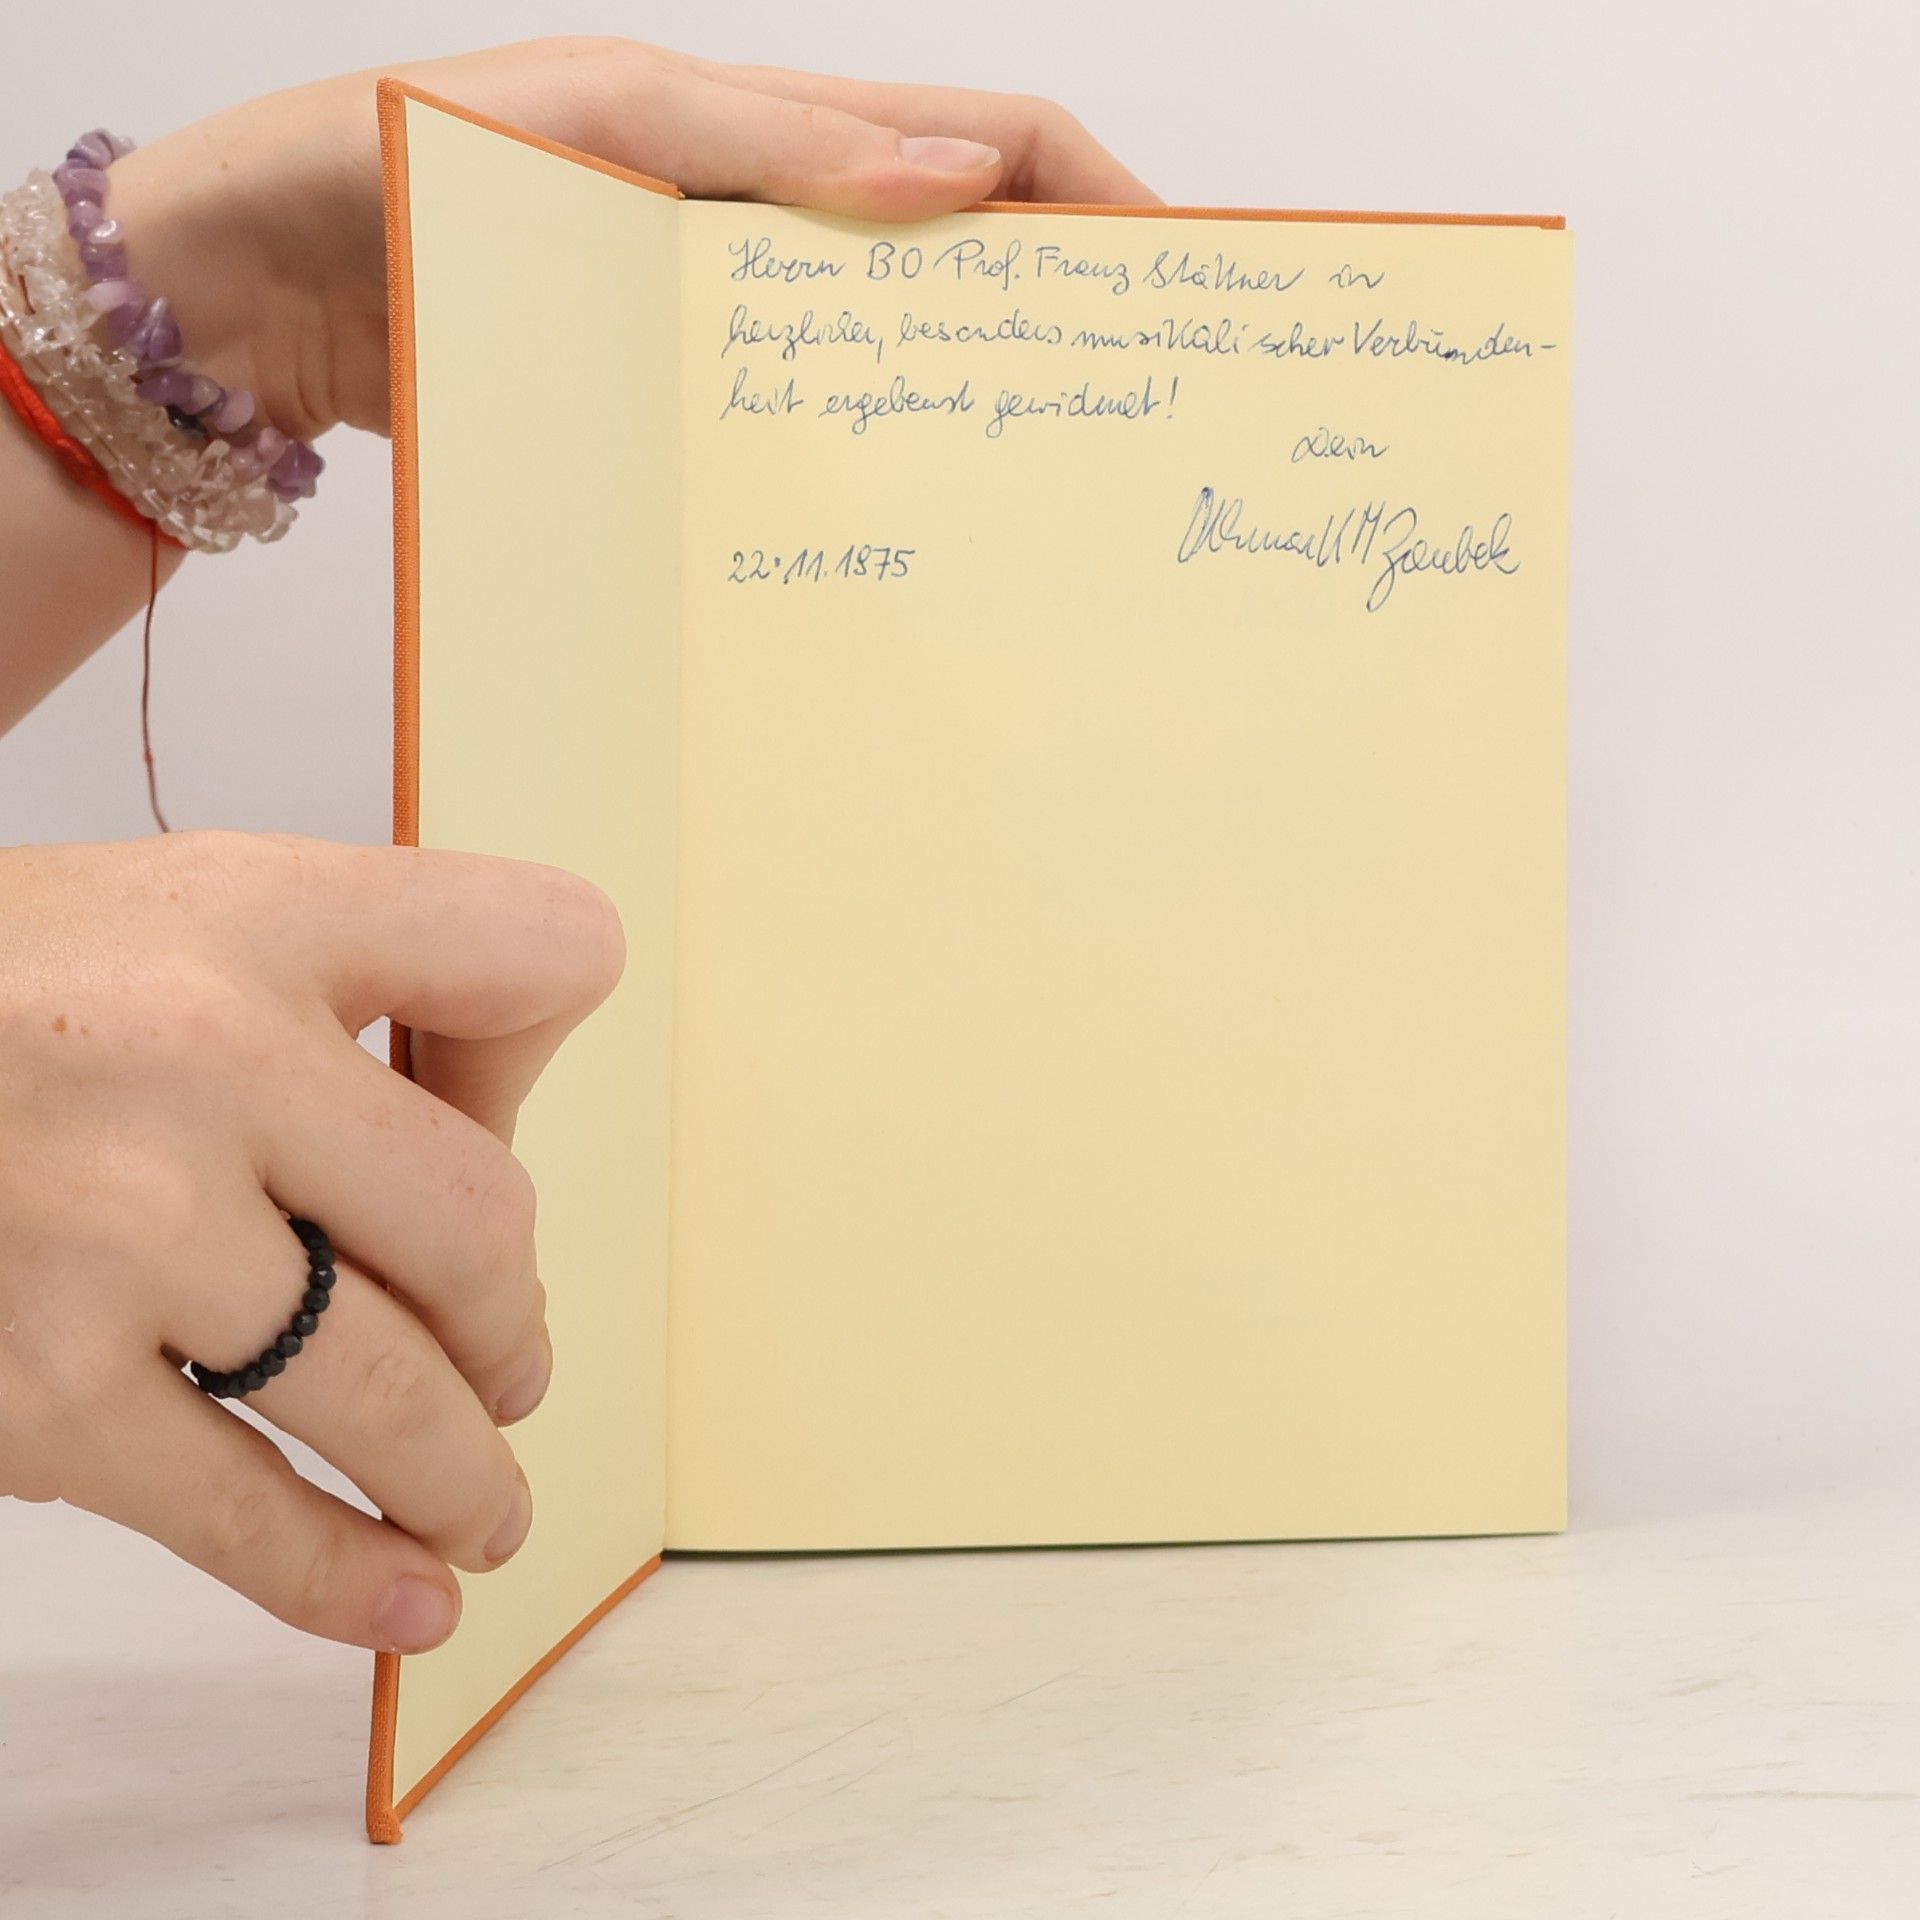 Herrn BO Prof. Franz Stättner in
herzlicher, besonders musikalischer Verbunden-
heit ergebenst gewidmet!
Dein
Othmar K M Zaubek
22.11.1975